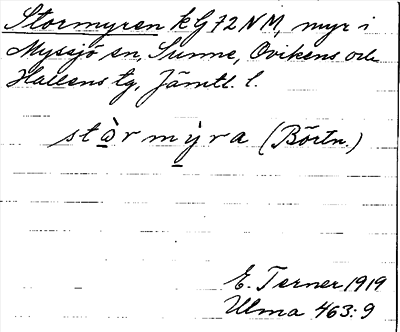 Stormyren kG72NM, myr i
Myssjö sn, Sunne, Ovikens och
Hallens tg, Jämtl. l.
stὼrmỳra (Börtn.)
E. Terner 1919
Ulma 463:9